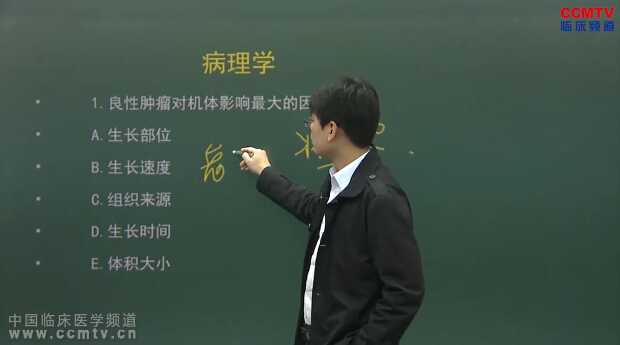 CCMTV
临床频道
病理学
• 1.良性肿瘤对机体影响最大的因
• A.生长部位
• B.生长速度
• C.组织来源
• D.生长时间
• E.体积大小
中国临床医学频道
www.ccmtv.cn